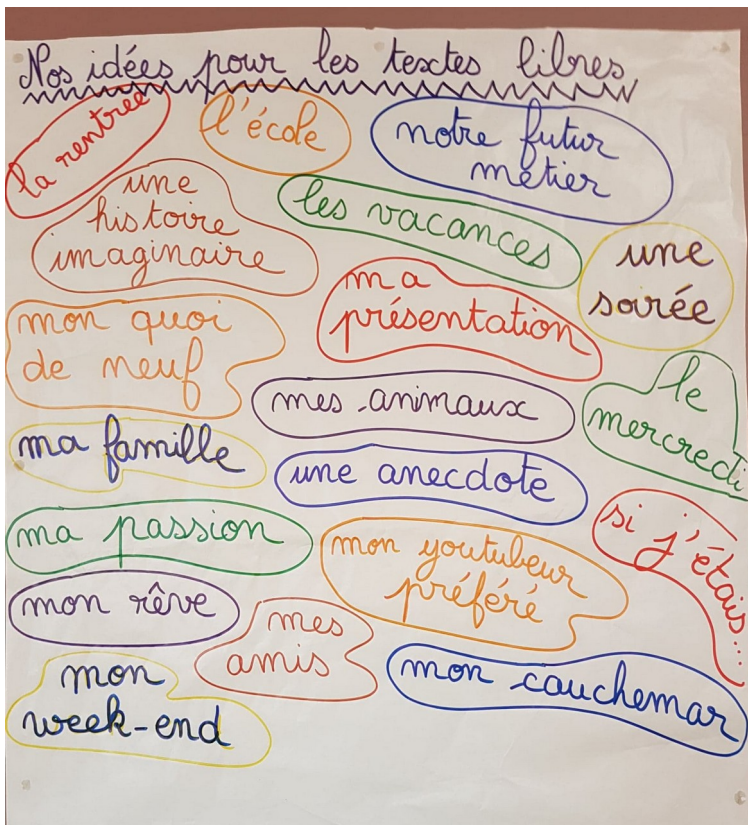 Nos idées pour les textes libres
la rentrée
l'école
notre futur
métier
une
histoire
imaginaire
les vacances
une
soirée
ma
présentation
mon quoi
de neuf
mes animaux
le
mercredi
ma famille
une anecdote
si j'étais...
ma passion
mon youtubeur
préféré
mon rêve
mes
amis
mon cauchemar
mon
week-end